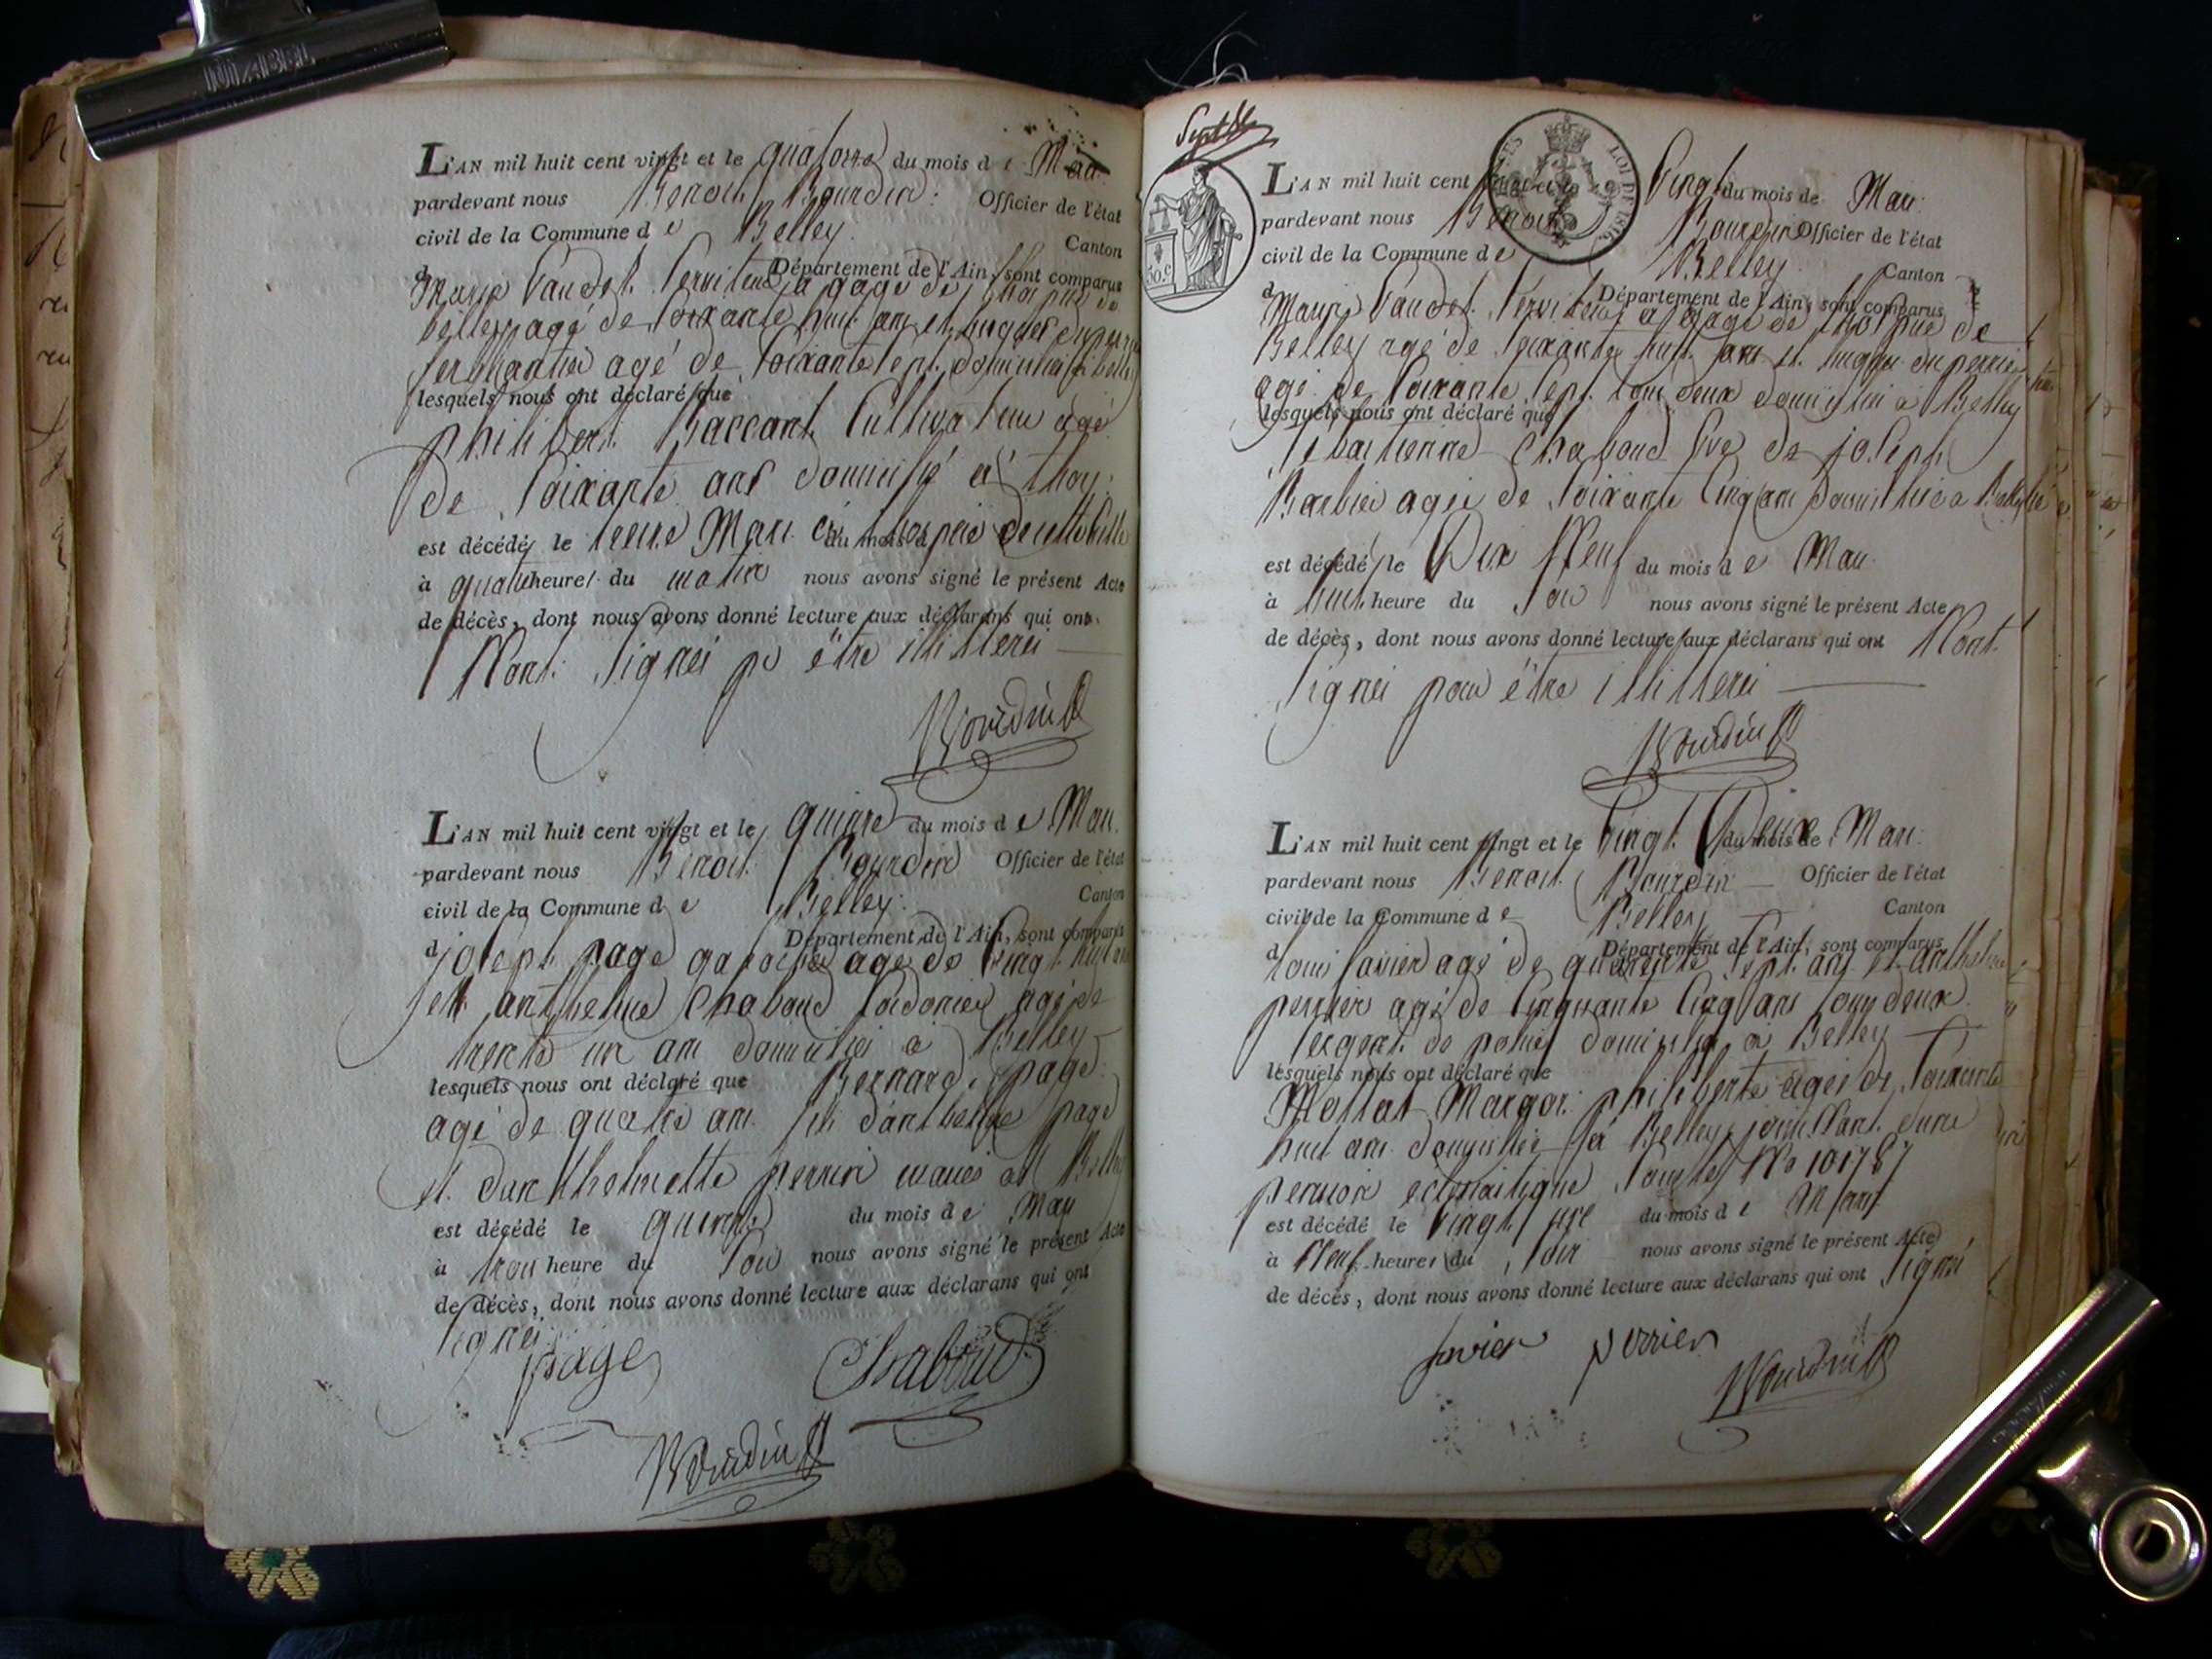 NIABEL
L'AN mil huit cent vingt et le quatorze du mois de Mars
pardevant nous Benoit Bourdin Officier de l'état
civil de la Commune de Belley Canton
d Département de l'Ain, sont comparus
Maurice Vaudet Serviteur à gage de l'hospice de
belley agé de Soixante huit ans et hugues duperrier
agé de Soixante Sept domiciliés à belley
lesquels nous ont déclaré que
philibert Baccard Cultivateur agé
de Soixante ans domicilié à
est décédé le treize Mars du mois d à l'hospice de cette ville
à quatre heures du matin nous avons signé le présent Acte
de décès, dont nous avons donné lecture aux déclarans qui ont
N'ont Signés pr être illitterés
Bourdin
L'AN mil huit cent vingt et le quinze du mois de Mars
pardevant nous Benoit Bourdin Officier de l'état
civil de la Commune de Belley Canton
d Département de l'Ain, sont comparus
joseph page agé de Vingt huit ans
et anthelme Chaboud Cordonier agé de
trente un ans domiciliés à Belley
lesquels nous ont déclaré que Bernard page
agé de quatre ans fils d'anthelme page
et d'anthelmette perrin mariés à Belley
est décédé le quinze du mois de Mars
à trois heure du Soir nous avons signé le présent Acte
de décès, dont nous avons donné lecture aux déclarans qui ont
Signés
page Chaboud
Bourdin
LOI DE 1816.
50.c
L'AN mil huit cent vingt et le Vingt du mois de Mars
pardevant nous Benoit Bourdin Officier de l'état
civil de la Commune de Belley Canton
d Département de l'Ain, sont comparus
Maurice Vaudet Serviteur à gage de l'hospice de
Belley agé de Soixante huit ans et hugues duperrier
agé de Soixante Sept tous deux domiciliés à Belley
lesquels nous ont déclaré que
Sebastienne Chaboud Vve de joseph
Barbier agée de Soixante Cinq ans domiciliée à Belley
est décédé le Dix Neuf du mois de Mars
à huit heure du Soir nous avons signé le présent Acte
de décès, dont nous avons donné lecture aux déclarans qui ont N'ont
Signés pour être illitterés
Bourdin
L'AN mil huit cent vingt et le Vingt Deux du mois de Mars
pardevant nous Benoit Bourdin Officier de l'état
civil de la Commune de Belley Canton
d Département de l'Ain, sont comparus
Louis Janier agé de quarante Sept ans et anthelme
perrier agé de Cinquante Cinq ans tous deux
sergent de police domiciliés à Belley
lesquels nous ont déclaré que
Mollat Margo philiberte agée de Soixante
huit ans domiciliée à Belley jouissant d'une
pension eclesiastique Sous le No 101787
est décédé le Vingt une du mois de Mars
à Neuf heures du Soir nous avons signé le présent Acte
de décès, dont nous avons donné lecture aux déclarans qui ont Signé
Janier perrier
Bourdin